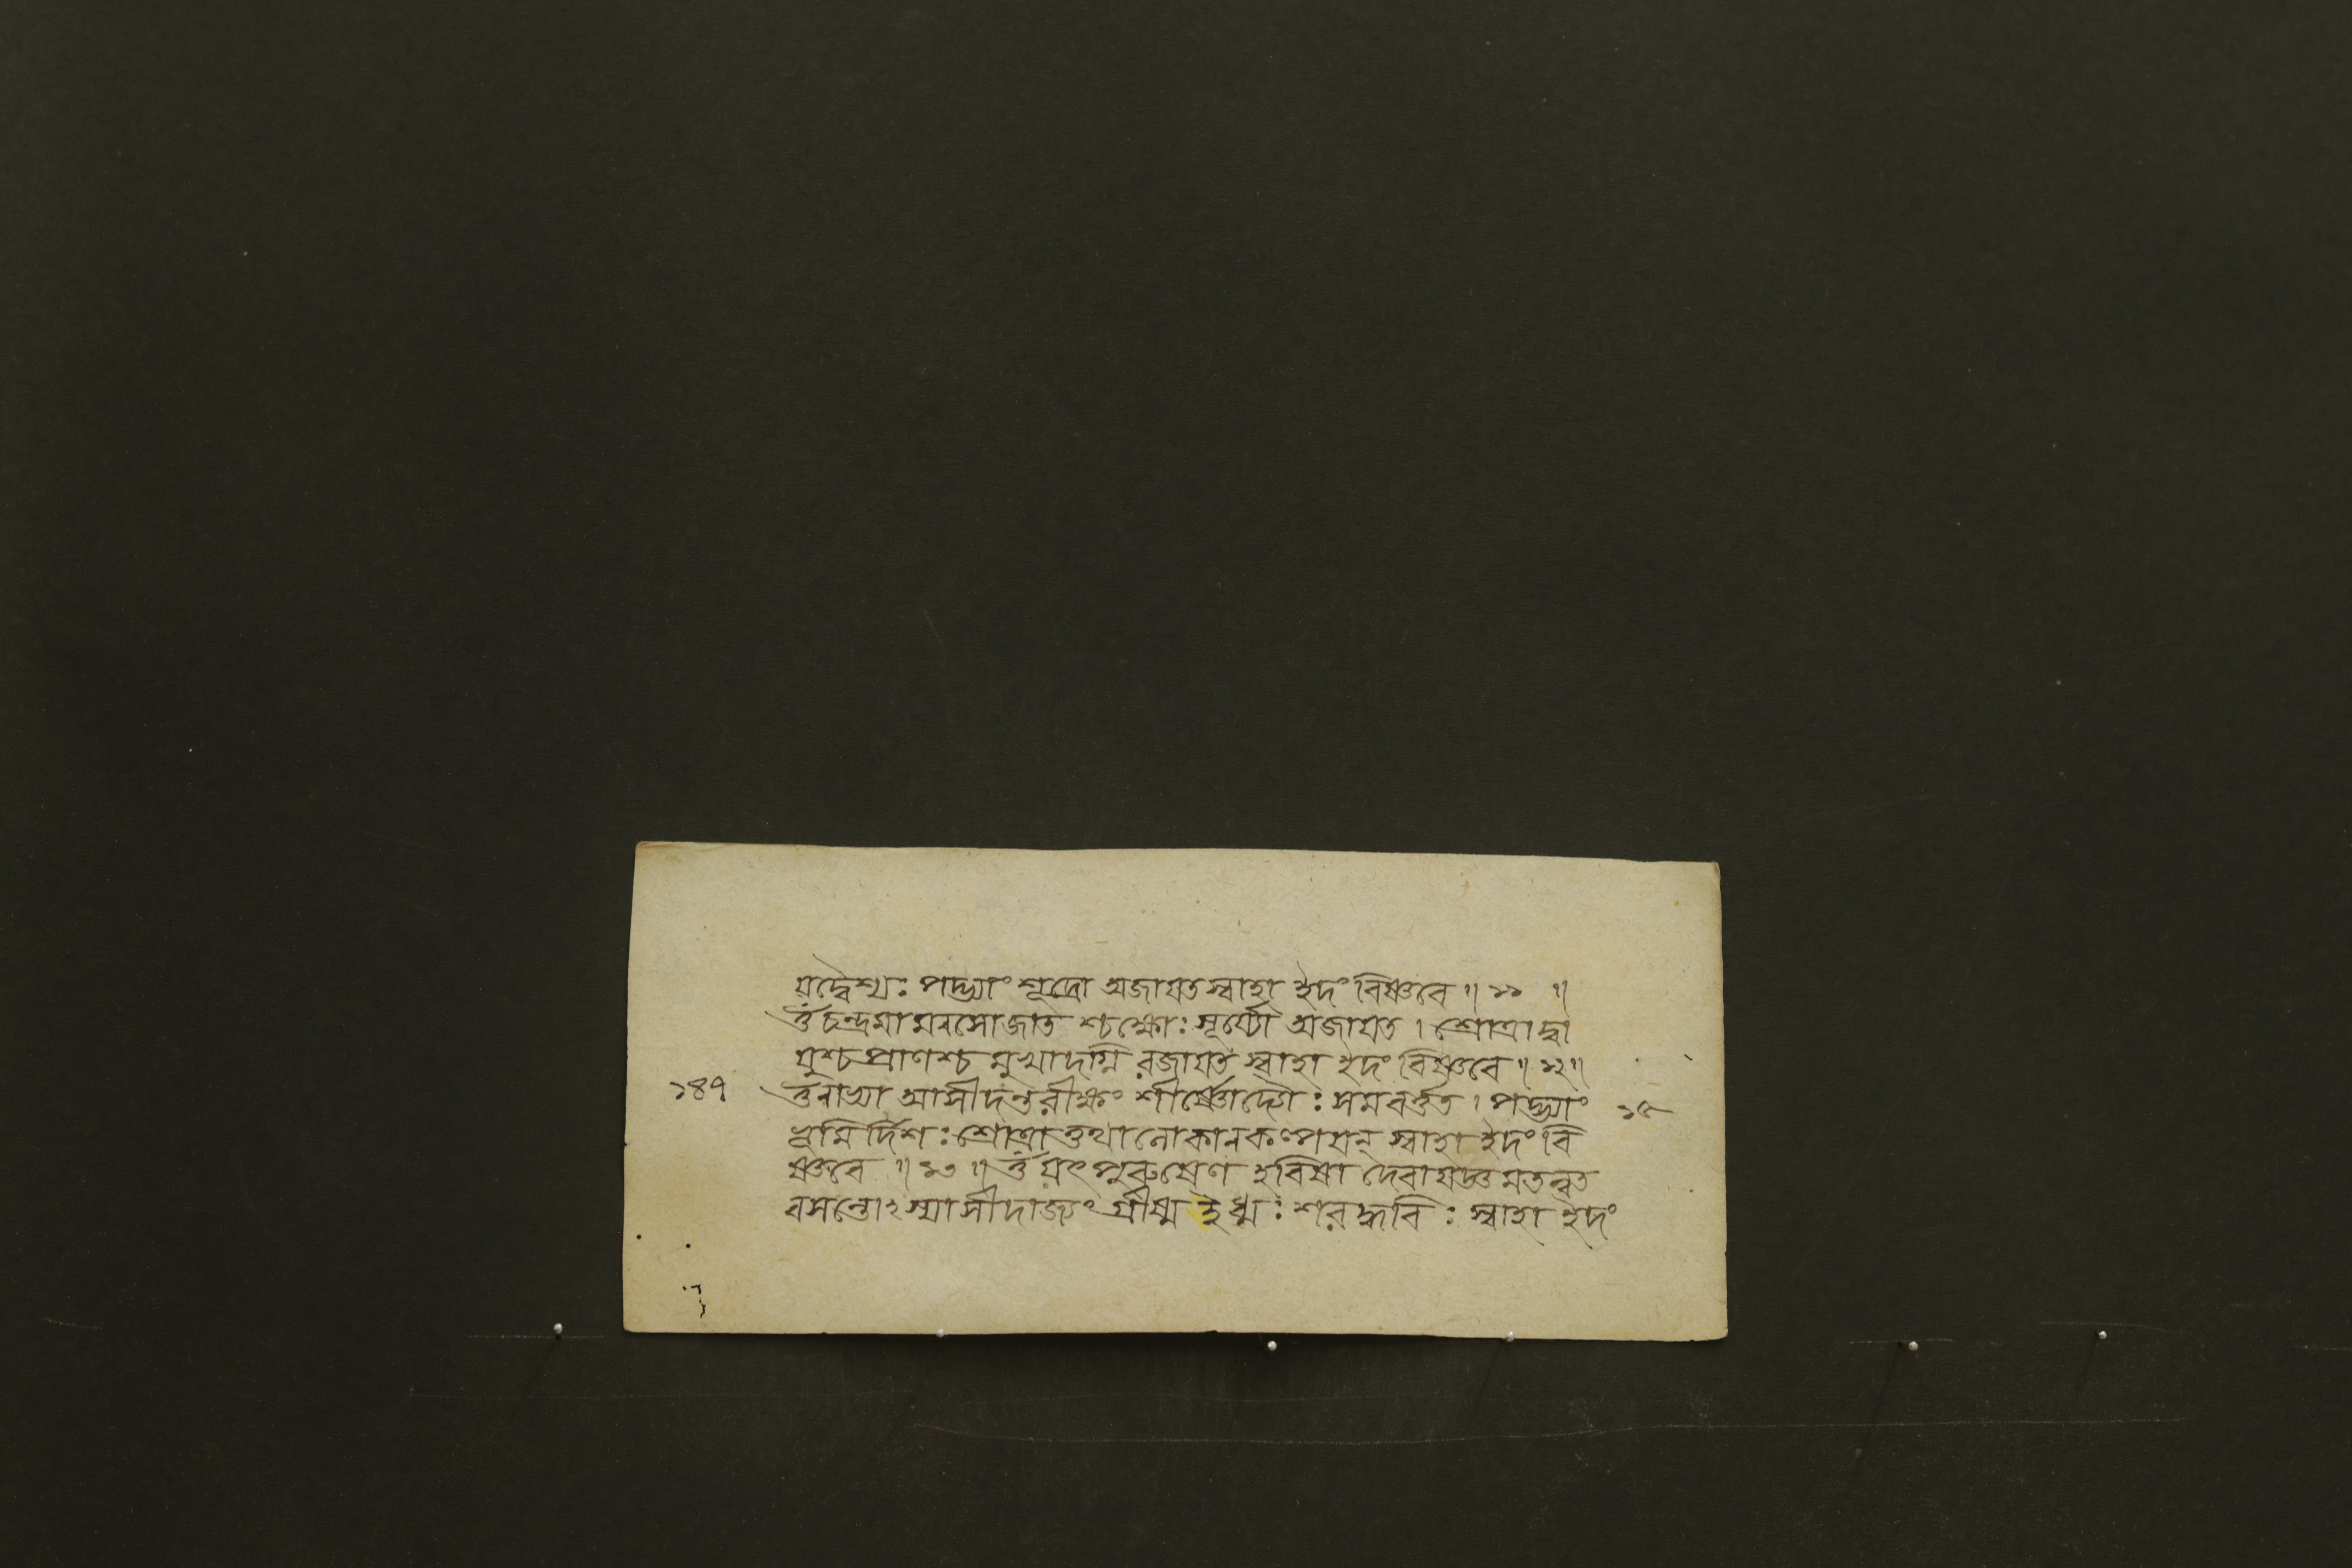 যদ্বৈশ্যঃ পদ্ভ্যাং শূদ্রো অজাযত স্বাহা ইদং বিষ্ণবে ॥ ১১ ॥
ওঁ চন্দ্রমা মনসো জাত শ্চক্ষোঃ সূর্য্যো অজাযত । শ্রোত্রাদ্বা
যুশ্চ প্রাণশ্চ মুখাদগ্নি রজাযত স্বাহা ইদং বিষ্ণবে ॥ ১২ ॥
১৪৭ ওঁ নাভ্যা আসীদন্তরীক্ষং শীর্ষ্ণোদ্যৌঃ সমবর্ত্তত । পদ্ভ্যাং
ভূমি র্দিশঃ শ্রোত্রাত্তথা লোকানকল্পযন্ স্বাহা ইদং বি
ষ্ণবে ॥ ১৩ ॥ ওঁ যৎ পুরুষেণ হবিষা দেবা যজ্ঞমতন্বত
বসন্তোঽস্যাসীদাজ্যং গ্রীষ্ম ইধ্মঃ শরদ্ধবিঃ স্বাহা ইদং